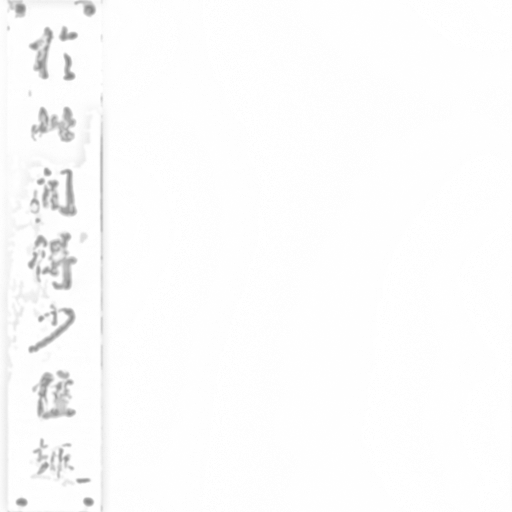 於此间得少佳趣